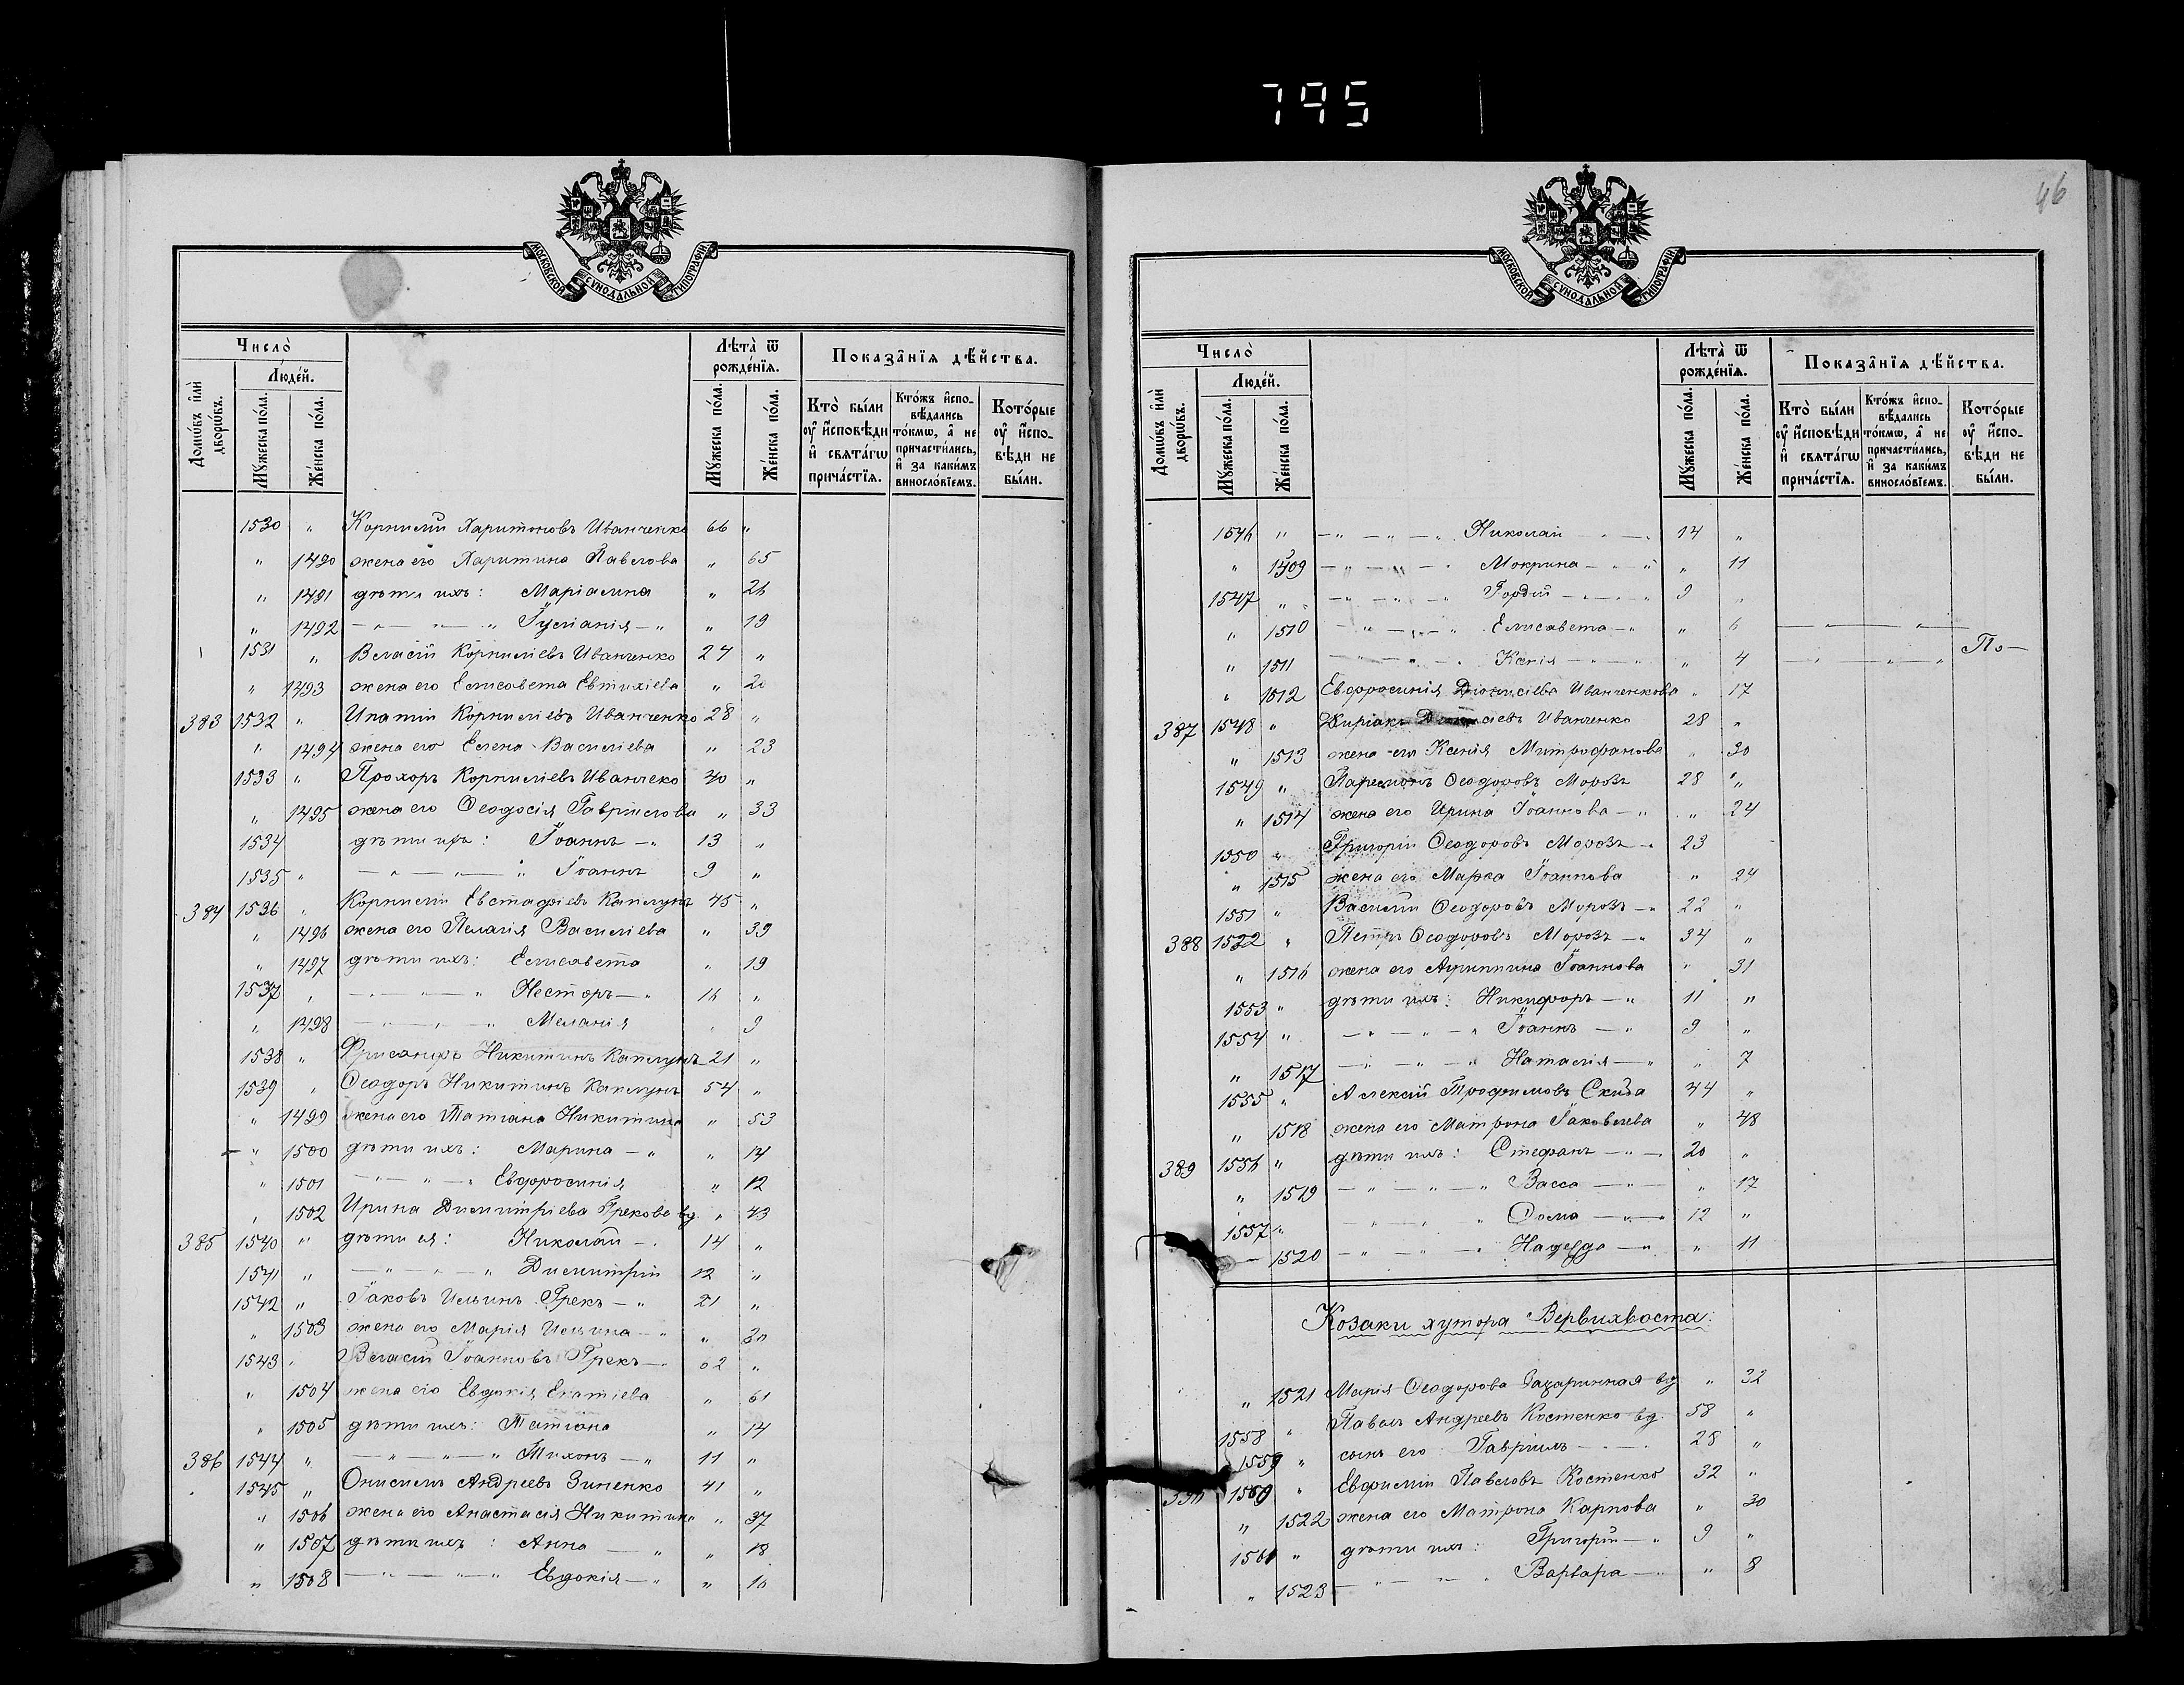 795
46
МОСКОВСКОЙ СѴНОДАЛЬНОЙ ТИПОГРАФІИ
Число̀
Людей.
Лѣта̀ ѿ рожде́нїѧ.
Показа̂нїѧ дѣ́йства.
Домѡ́въ и҆лѝ дворѡ́въ.
Мꙋ́жеска по́ла.
Же́нска по́ла.
Мꙋ́жеска по́ла.
Же́нска по́ла.
Кто̀ бы́ли ᲂу҆ и҆́сповѣди и҆ свѧта́гѡ прича́стїѧ.
Кто́жъ и҆спо-вѣ́дались то́кмѡ, а҆ не причасти́лись, и҆ за каки́мъ виносло́вїемъ.
Кото́рые ᲂу҆ и҆́спо-вѣди не бы́ли.
1530 " Корнилій Харитоновъ Иванченко 66 "
" 1490 жена его Харитина Павлова " 65
" 1491 дѣти ихъ: Маріамна " 26
" 1492 — " — " — " Іуліанія — " " 19
1531 " Власій Корниліевъ Иванченко 24 "
" 1493 жена его Елисавета Евтихіева " 20
383 1532 " Ипатій Корниліевъ Иванченко 28 "
" 1494 жена его Елена Василіева " 23
1533 " Прохоръ Корниліевъ Иванчеко 40 "
" 1495 жена его Ѳеодосія Гавріилова " 33
1534 дѣти ихъ: Іоаннъ — " 13 "
1535 " — " — " — " Іоаннъ 9 "
384 1536 " Корнилій Евстафіевъ Каплунъ 45 "
" 1496 жена его Пелагія Василіева " 39
" 1497 дѣти ихъ: Елисавета " 19
1537 " — " — " — " Несторъ — " 16 "
" 1498 — " — " — " Меланія " 9
1538 " Хрисанфъ Никитинъ Каплунъ 21 "
1539 " Ѳеодоръ Никитинъ Каплунъ 54 "
" 1499 жена его Татіана Никитина " 53
— " 1500 дѣти ихъ: Марина — " " 14
" 1501 — " — " — " Евфросинія " 12
" 1502 Ирина Димитріева Грекова вд. " 43
385 1540 " дѣти ея: Николай — " 14 "
1541 " — " — " — " Димитрій 12 "
1542 " Іаковъ Ильинъ Грекъ — " 21 "
" 1503 жена его Марія Ильина — " " 20
1543 " Власій Іоанновъ Грекъ — " 62 "
" 1504 жена его Евдокія Игнатіева " 61
" 1505 дѣти ихъ: Татіана " 14
386 1544 " — " — " — " Тихонъ — " 11 "
1545 " Онисимъ Андреевъ Зиненко 41 "
" 1506 жена его Анастасія Никитина " 37
" 1507 дѣти ихъ: Анна — " " 18
" 1508 — " — " — " Евдокія — " " 16
МОСКОВСКОЙ СѴНОДАЛЬНОЙ ТИПОГРАФІИ
Число̀
Людей.
Лѣта̀ ѿ рожде́нїѧ.
Показа̂нїѧ дѣ́йства.
Домѡ́въ и҆лѝ дворѡ́въ.
Мꙋ́жеска по́ла.
Же́нска по́ла.
Мꙋ́жеска по́ла.
Же́нска по́ла.
Кто̀ бы́ли ᲂу҆ и҆́сповѣди и҆ свѧта́гѡ прича́стїѧ.
Кто́жъ и҆спо-вѣ́дались то́кмѡ, а҆ не причасти́лись, и҆ за каки́мъ виносло́вїемъ.
Кото́рые ᲂу҆ и҆́спо-вѣди не бы́ли.
1546 " — " — " — " Николай — " — " 14 "
" 1509 — " — " — " Мокрина — " — " " 11
1547 " — " — " — " Гордій — " — " 9 "
" 1510 — " — " — " Елисавета — " " 6 — " —
" 1511 — " — " — " Ксенія — " — " " 4 — " — " — " По —
" 1512 Евфросинія Діонисіева Иванченкова " 17
387 1548 " Киріакъ Иванченко 28 "
" 1513 жена его Ксенія Митрофанова " 30
1549 " Парѳмонъ Ѳеодоровъ Морозъ 28 "
" 1514 жена его Ирина Іоаннова — " " 24
1550 " Григорій Ѳеодоровъ Морозъ — " 23
" 1515 жена его Марѳа Іоаннова " 24
1551 " Василій Ѳеодоровъ Морозъ — " 22 "
388 1522 " Петръ Ѳеодоровъ Морозъ — " 34 "
" 1516 жена его Агриппина Іоаннова " 31
1553 " дѣти ихъ: Никифоръ — " 11 "
1554 " — " — " — " Іоаннъ — " 9 "
" 1517 — " — " — " Наталія — " " 7
1555 " Алексій Трофимовъ Скиба 44 "
" 1518 жена его Матрона Іаковлева " 48
389 1556 " дѣти ихъ: Стефанъ — " — 20 "
" 1519 — " — " — " Васса — " — " 17
1557 " — " — " " Ѳома — " — " 12 "
— 1520 — " — " — " Надежда — " " 11
Козаки хутора Вервихвоста:
" 1521 Марія Ѳеодорова вд " 32
1558 " Павелъ Андреевъ Костенко вд. 58 "
1559 " сынъ его: Гавріилъ — " — 28 "
390 1560 " Евфимій Павловъ Костенко 32 "
" 1522 жена его Матрона Карпова " 30
1561 " дѣти ихъ: Григорій — " 9 "
" 1523 — " — " — " Варвара — " " 8